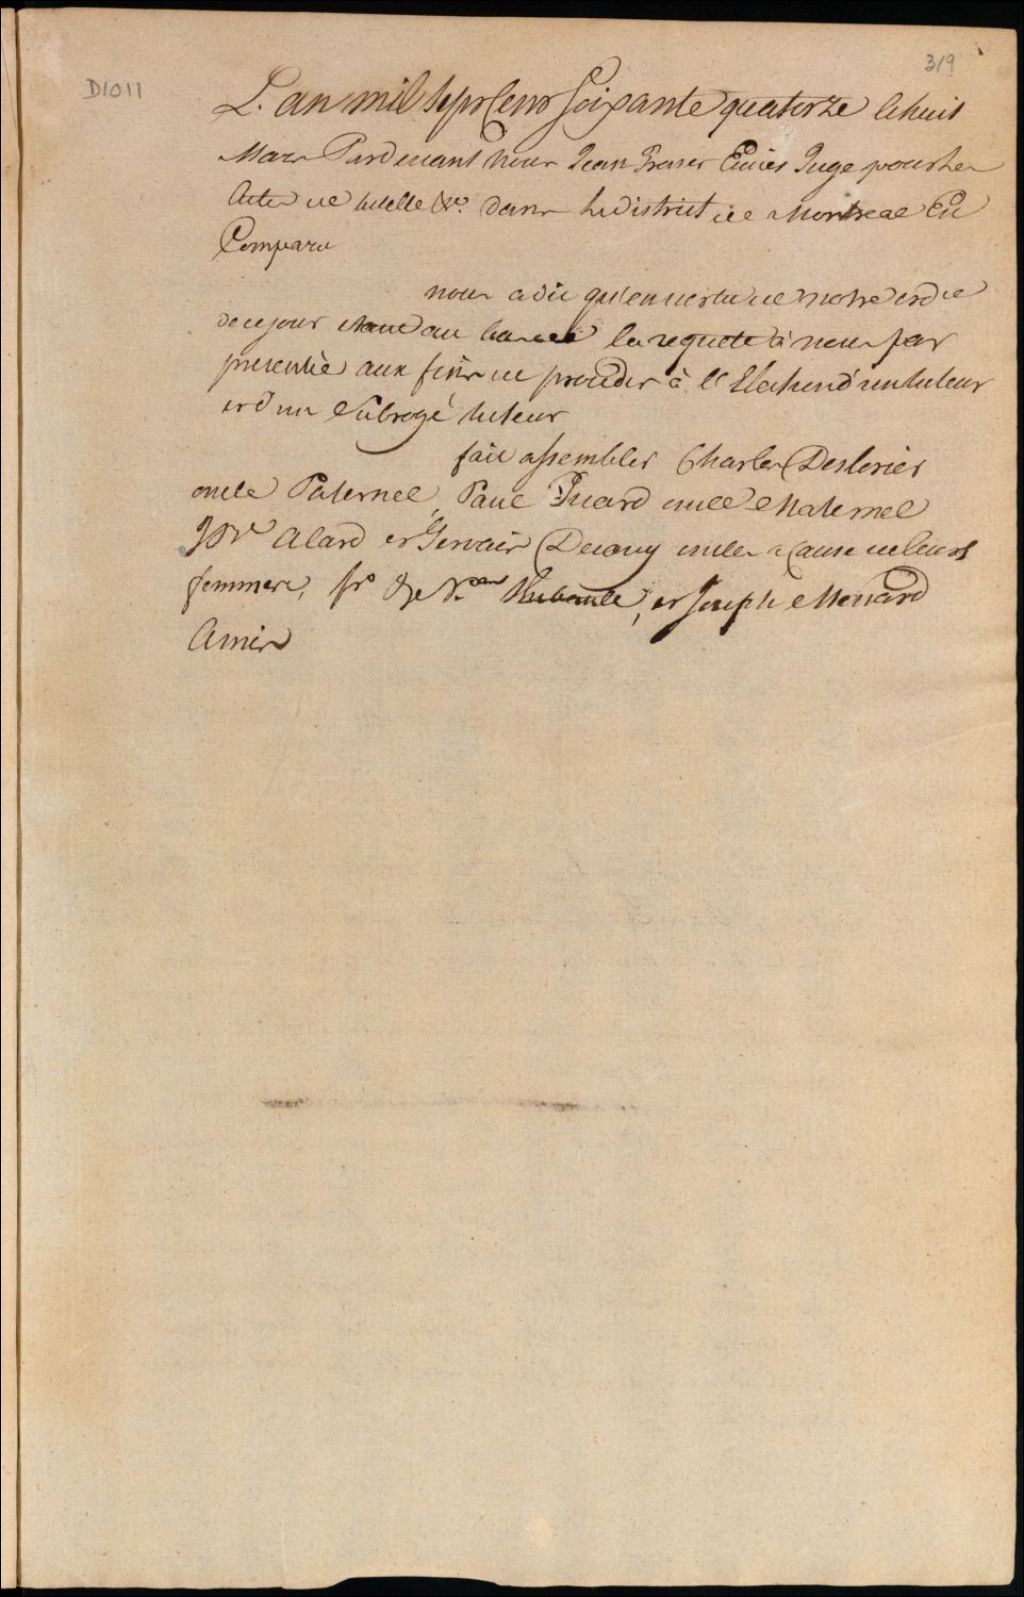 D1011
319
L'an mil Sept Cent Soixante quatorze le huit
Mars Pardevant nous Jean Fraser Ecuier Juge pour les
Actes de tutelle &c. dans le district de Montreal Est
Comparu
nous a dit qu'en vertu de notre ordre
de ce jour etant au bas de la requete à nous par
presentée aux fins de proceder à l'Election d'un tuteur
et d'un Subrogé tuteur
fait assembler Charles Deslorier
oncle Paternel, Paul oncle Maternel
Alard et Gervais Decary oncles a Cause de leurs
femmes, et Joseph Menard
Amis